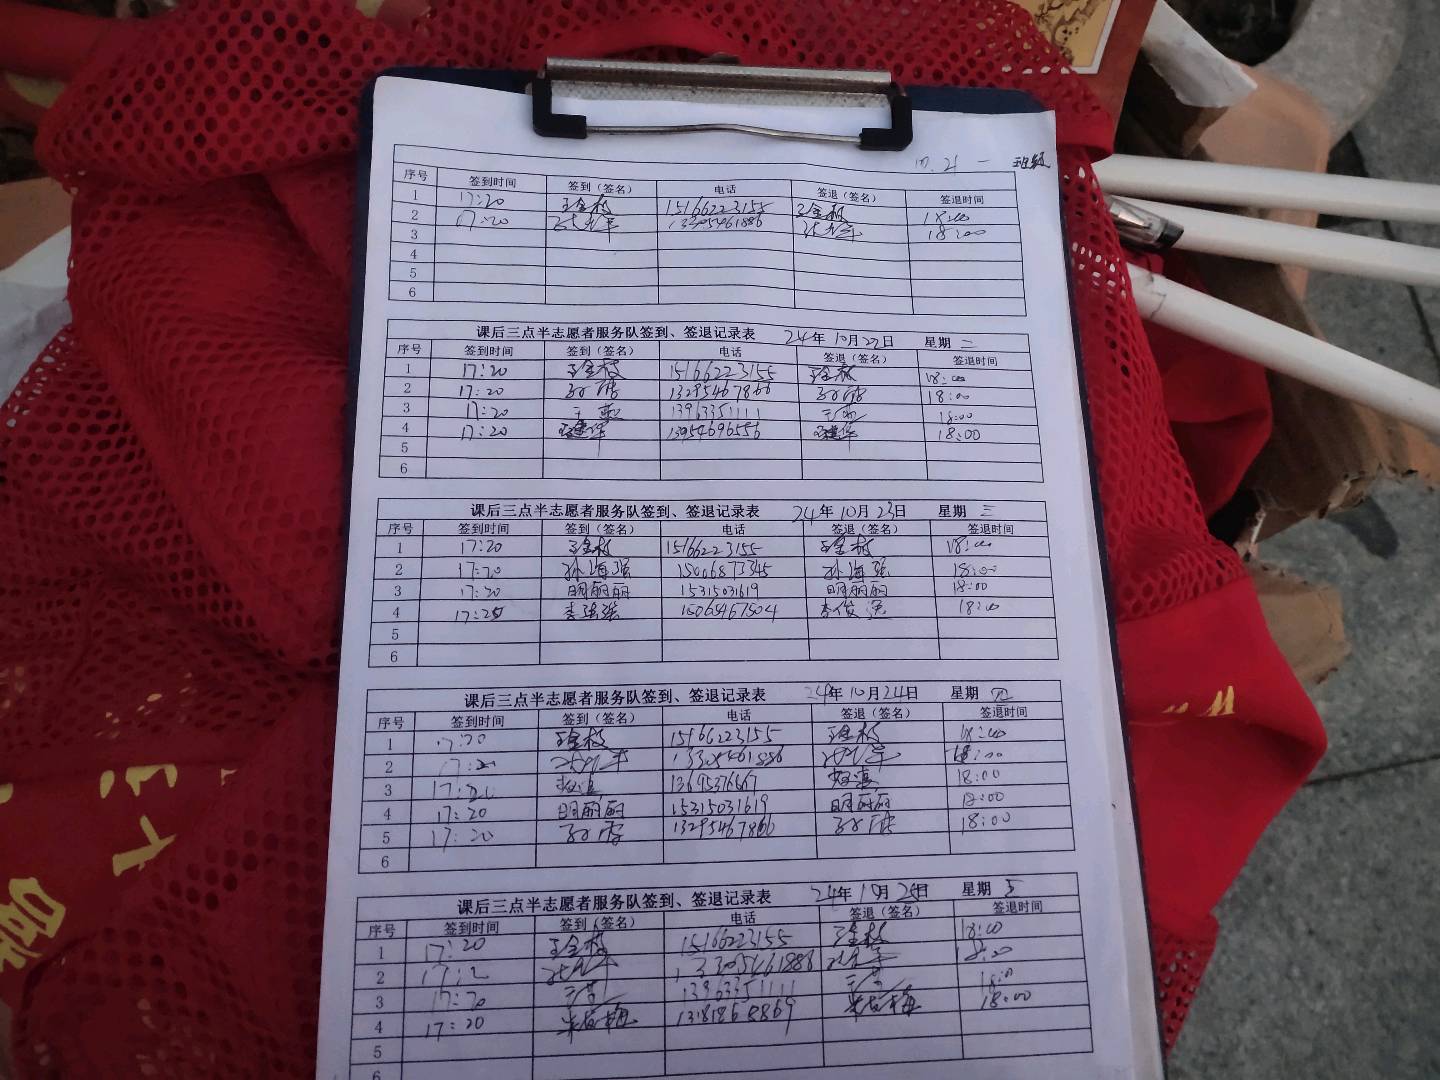 10.21 一 班级
序号 签到时间 签到（签名） 电话 签退（签名） 签退时间
1 17:20 王金枝 15166223155 王金枝 18:00
2 17:20 18:00
3
4
5
6
课后三点半志愿者服务队签到、签退记录表 24年10月22日 星期二
序号 签到时间 签到（签名） 电话 签退（签名） 签退时间
1 17:20 王金枝 15166223155 王金枝 18:00
2 17:20 13295467866 18:00
3 17:20 13963351111 18:00
4 17:20 13954696556 18:00
5
6
课后三点半志愿者服务队签到、签退记录表 24年10月23日 星期三
序号 签到时间 签到（签名） 电话 签退（签名） 签退时间
1 17:20 王金枝 15166223155 王金枝 18:00
2 17:20 孙海强 15066873345 孙海强 18:00
3 17:20 明丽丽 15315031619 明丽丽 18:00
4 17:25 15065467504 18:00
5
6
课后三点半志愿者服务队签到、签退记录表 24年10月24日 星期四
序号 签到时间 签到（签名） 电话 签退（签名） 签退时间
1 17:20 王金枝 15166223155 王金枝 18:00
2 17:20 18:00
3 17:20 18:00
4 17:20 明丽丽 15315031619 明丽丽 18:00
5 17:20 13295467866 18:00
6
课后三点半志愿者服务队签到、签退记录表 24年10月25日 星期五
序号 签到时间 签到（签名） 电话 签退（签名） 签退时间
1 17:20 王金枝 15166223155 王金枝 18:00
2 17:2 18:00
3 17:20 13963351111 18:00
4 17:20 13181868869 18:00
5
6